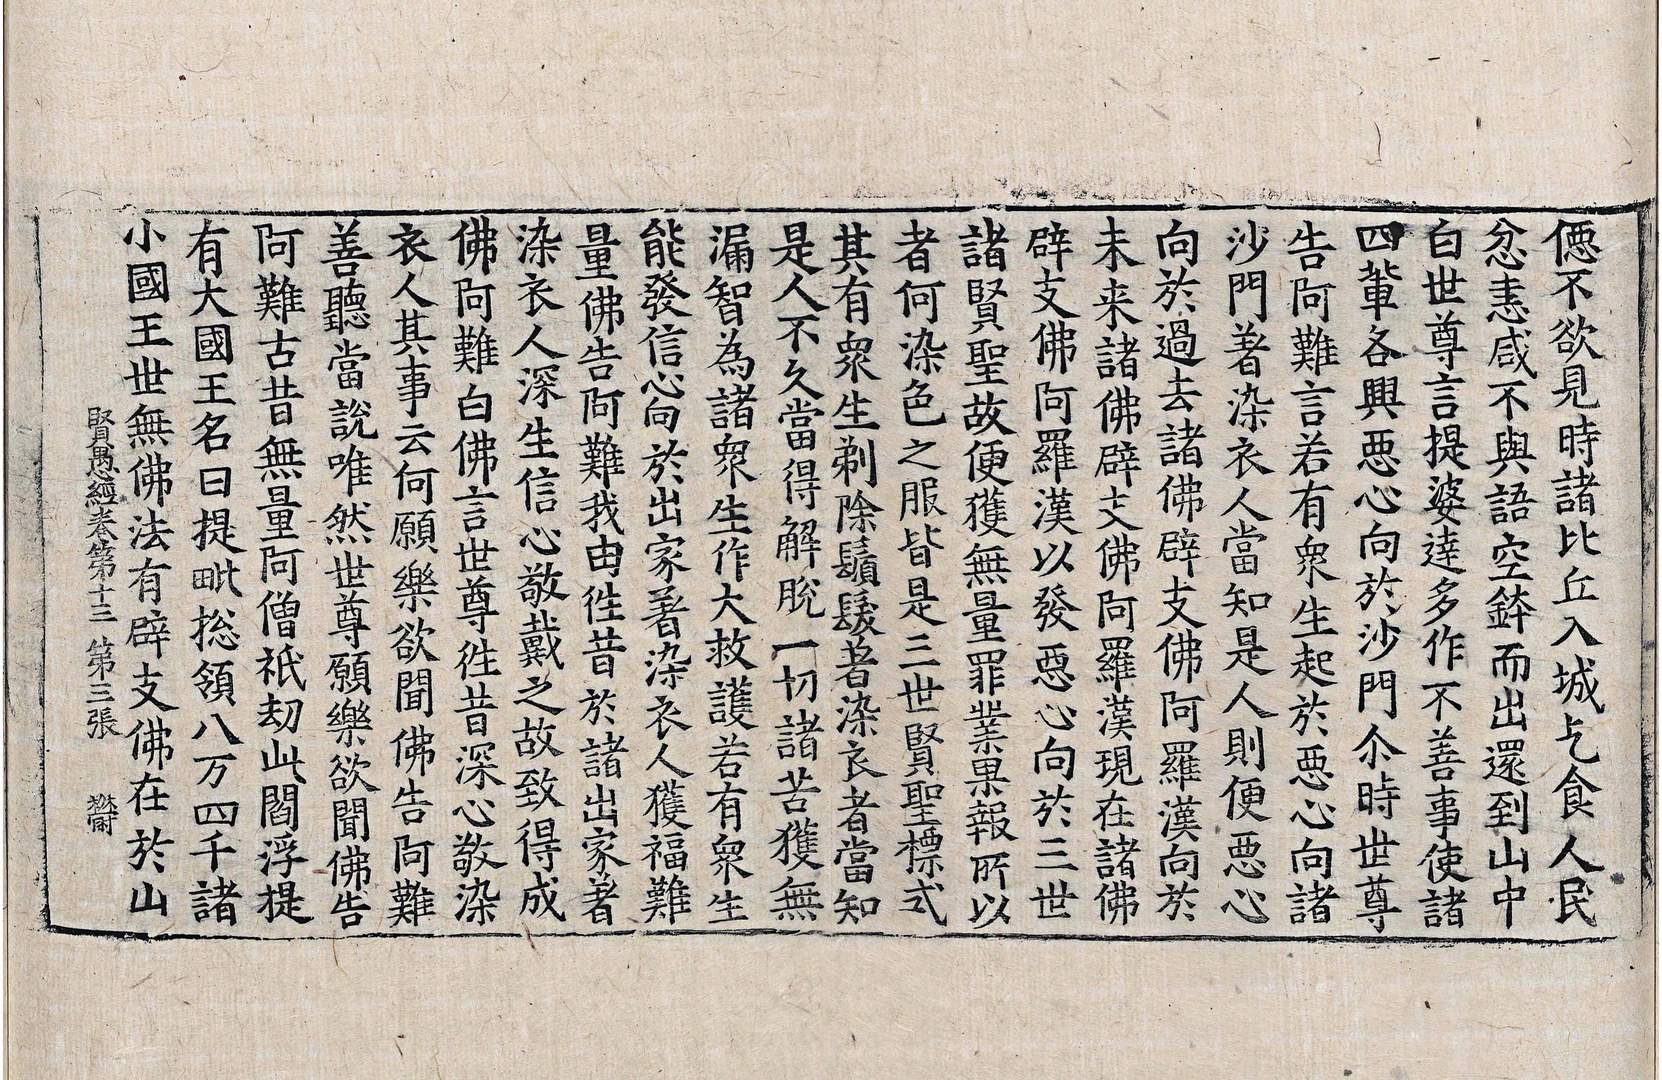 僫不欲見時諸比丘入城乞食人民
忿恚咸不與語空鉢而出還到山中
白世尊言提婆達多作不善事使諸
四輩各興惡心向於沙門尒時世尊
告阿難言若有衆生起於惡心向諸
沙門著染衣人當知是人則便惡心
向於過去諸佛辟支佛阿羅漢向於
未来諸佛辟支佛阿羅漢現在諸佛
辟支佛阿羅漢以發惡心向於三世
諸賢聖故便獲無量罪業果報所以
者何染色之服皆是三世賢聖標式
其有衆生剃除鬚髮著染衣者當知
是人不久當得解脫一切諸苦獲無
漏智為諸衆生作大救護若有衆生
能發信心向於出家著染衣人獲福難
量佛告阿難我由徃昔於諸出家著
染衣人深生信心敬戴之故致得成
佛阿難白佛言世尊徃昔深心敬染
衣人其事云何願樂欲聞佛告阿難
善聽當說唯然世尊願樂欲聞佛告
阿難古昔無量阿僧祇劫此閻浮提
有大國王名曰提毗捴領八万四千諸
小國王世無佛法有辟支佛在於山
賢愚經卷第十三 第三張